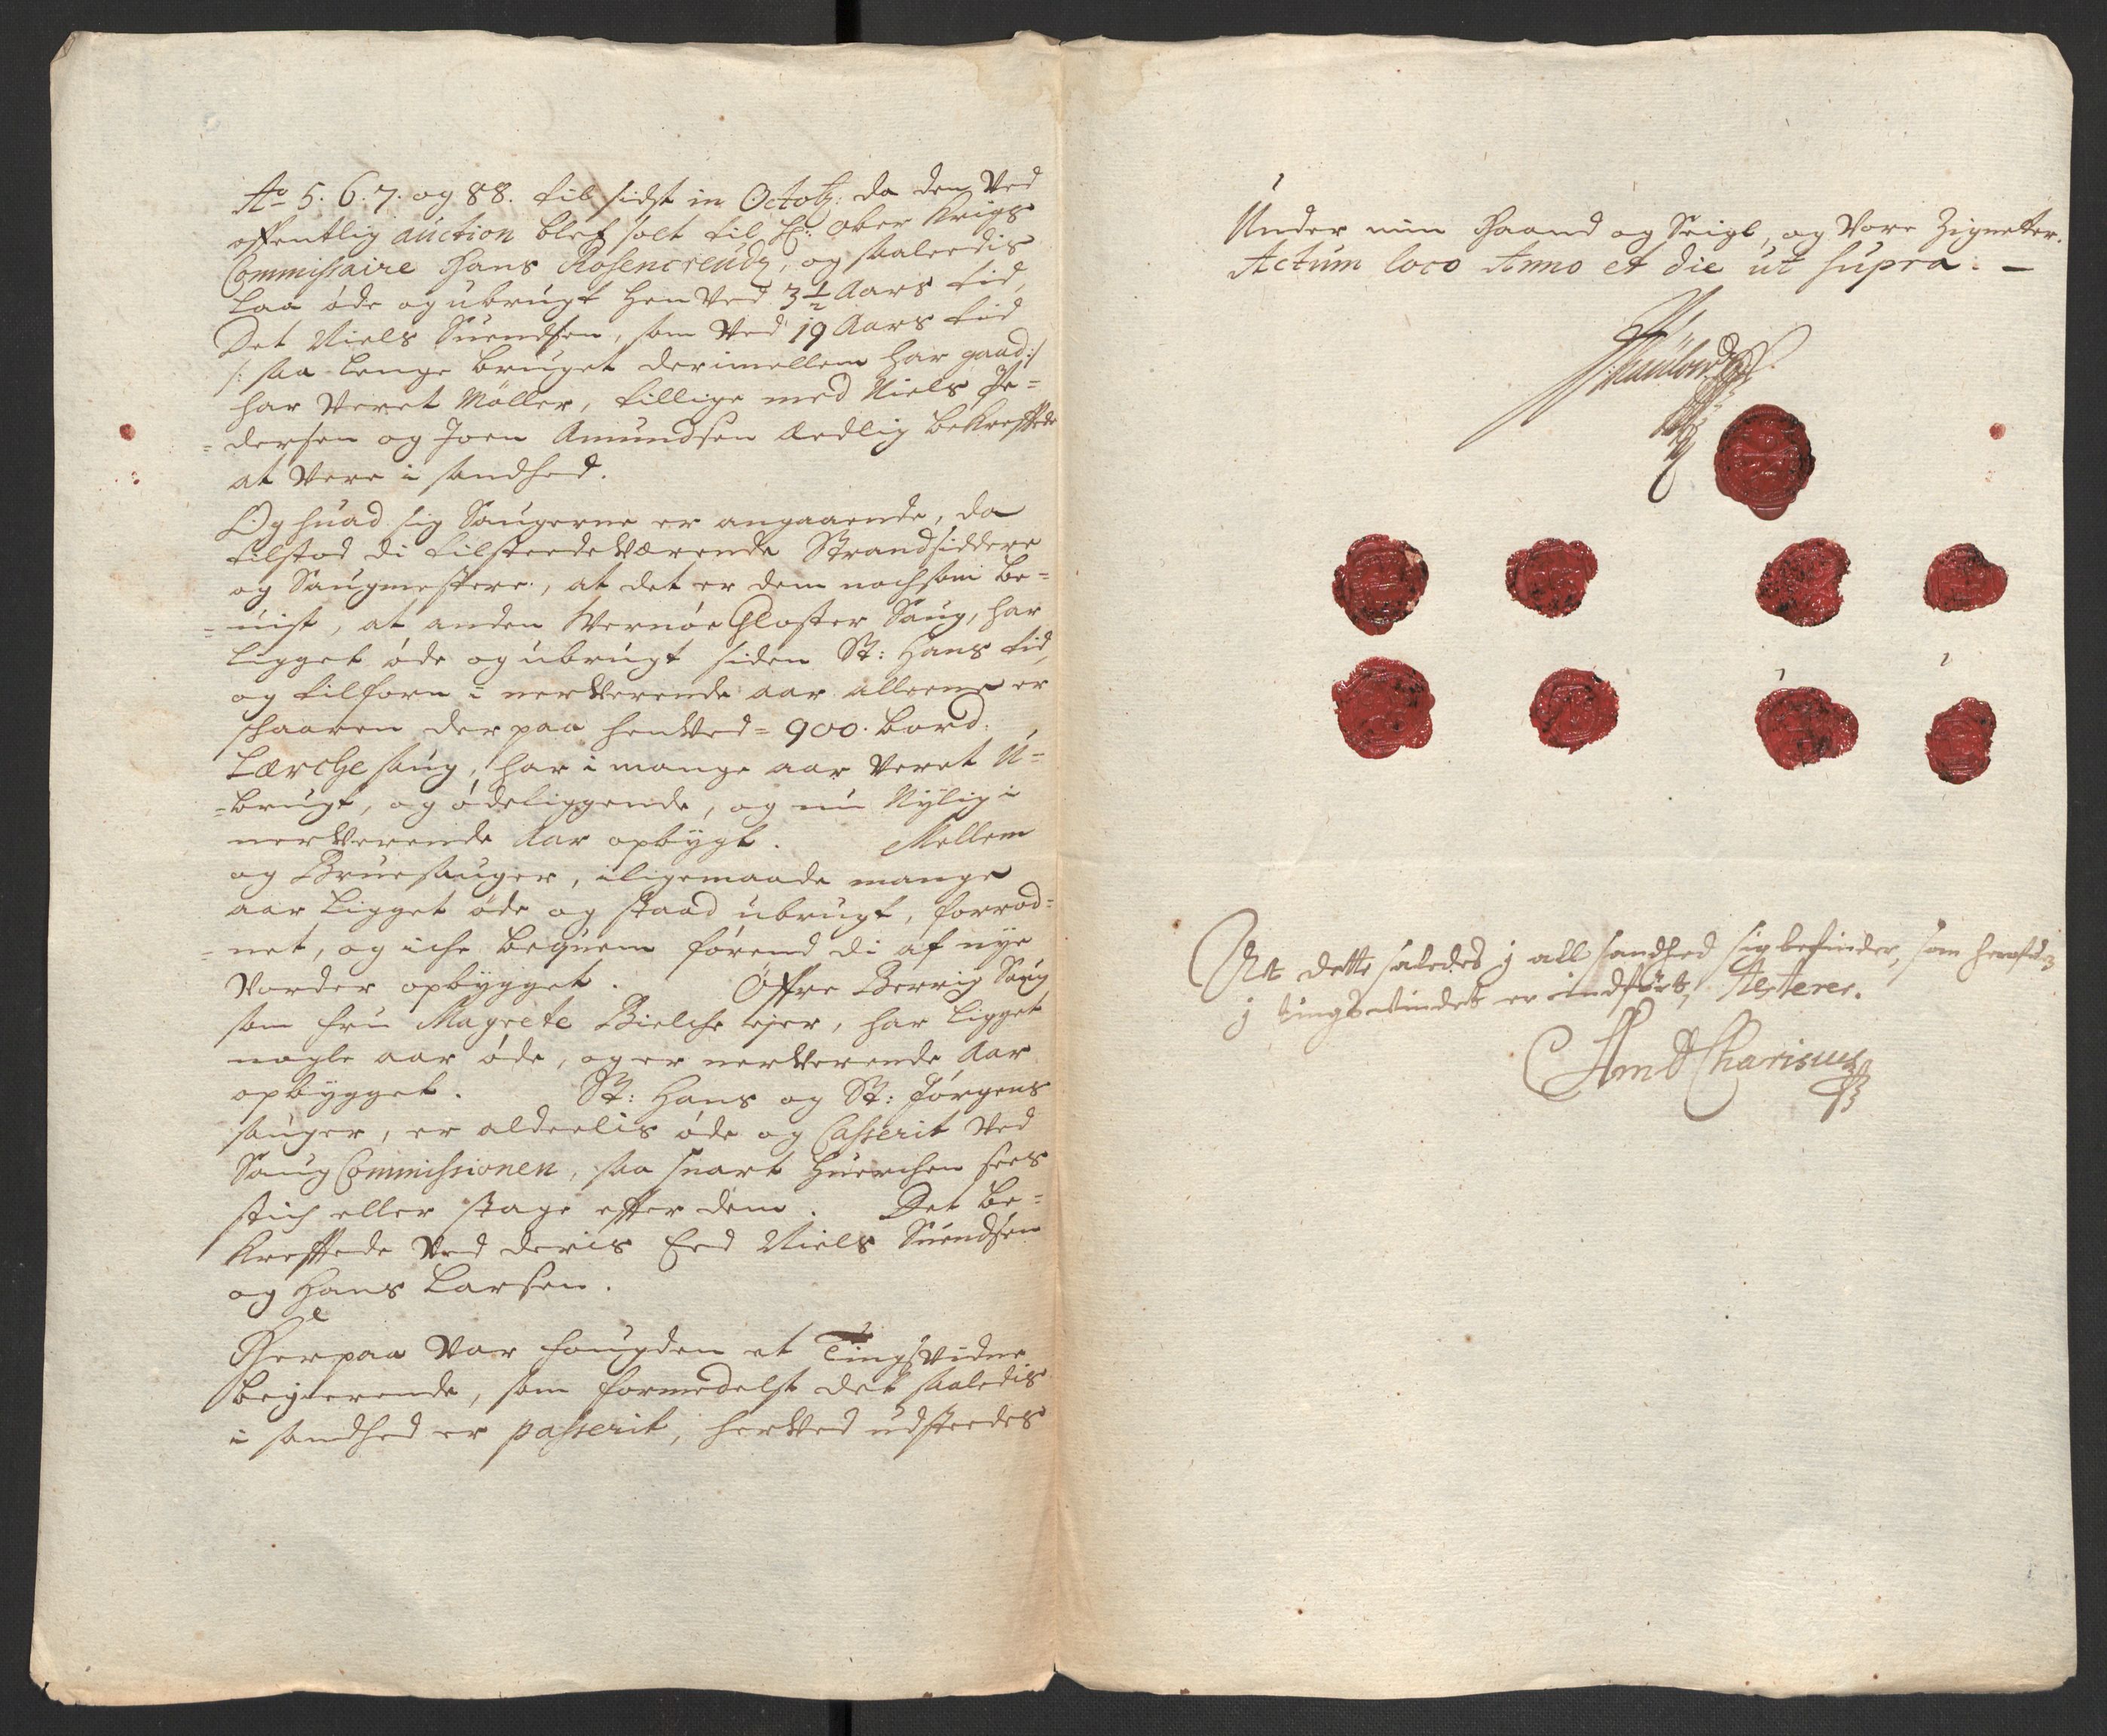 Ao 5. 6. 7. og 88. til sidst in Octob: da den ved
offentlig auction blef solt til H: Ober Krigs
Commissaire Hans Rosencreutz, og saaleedis
laa øde og ubrugt hen ved 3½ Aars tid,
Det Niels Suendsen, som ved 19 Aars tid
/: saa lenge bruget derimellem har gaad :/
har veret Møller, tillige med Niels Pe=
=dersen og Joen Amundsen Aedlig bekreffted
at vere i sandhed.
Og huad sig Saugerne er angaaende, da
tilstod di tilsteedeværende Strandsiddere
og Saugmestere, at det er dem nochsom be=
=uist, at anden Wernøe Closter Saug, har
ligget øde og ubrugt siden St: Hans tid,
og tilforn i nerverende aar alleene er
schaaren der paa henved = 900. bord.
Lærche saug, har i mange aar veret U=
=brugt, og ødeliggende, og nu Nylig i
nerverende Aar opbygt. Mellem
og Bruesauger, iligemaade mange
aar ligget øde og staad ubrugt, forraad=
=net, og iche beqvem førend di af nye
vorder opbygget. Øffre Berrig Saug
som fru Magrete Bielche ejer, har ligget
nogle aar øde, og er nerverende Aar
opbygget. St: Hans og St: Jørgens
sauger, er aldeelis øde og Casserit ved
Saug Commissionen, saa snart huerchen sees
stich eller stage effter dem. Det be=
kreffede ved deris Eed Niels Suendsen
og Hans Larsen.
Herpaa var fougden et Tingsvidne
begierende, som formedelst det saaledis
i sandhed er passerit, herved udsteedes
Under min Haand og Seigl, og vore Zigneter.
Actum loco Anno et die ut supra. –
At dette saledes j all sandhed sig befinder, som herofuen
j tingsvindet er indført, Testerer.
Amd Charisius